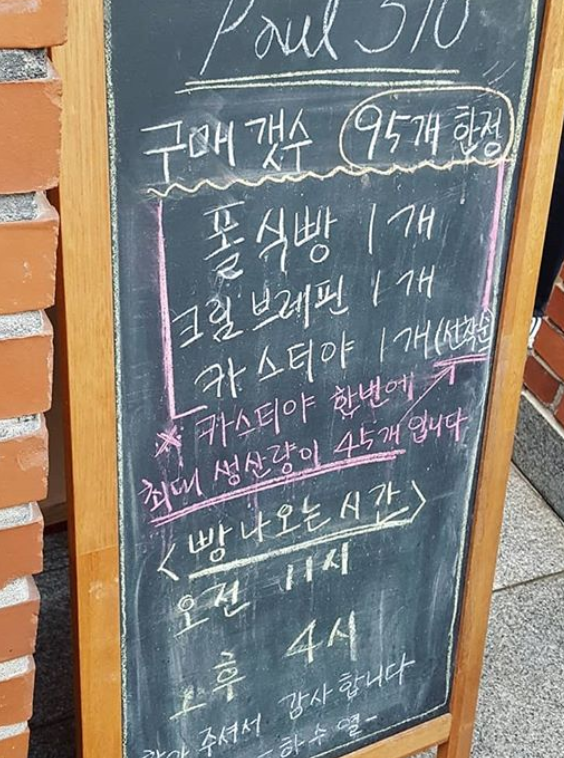 Paul 310
구매 갯수 95개 한정
폴 식빵 1개
크림 브레핀 1개
카스터야 1개 (선착순)
※ 카스티야 한번에
최대 생산량이 45개 입니다
<빵 나오는 시간>
오전 11시
오후 4시
주셔서 감사합니다